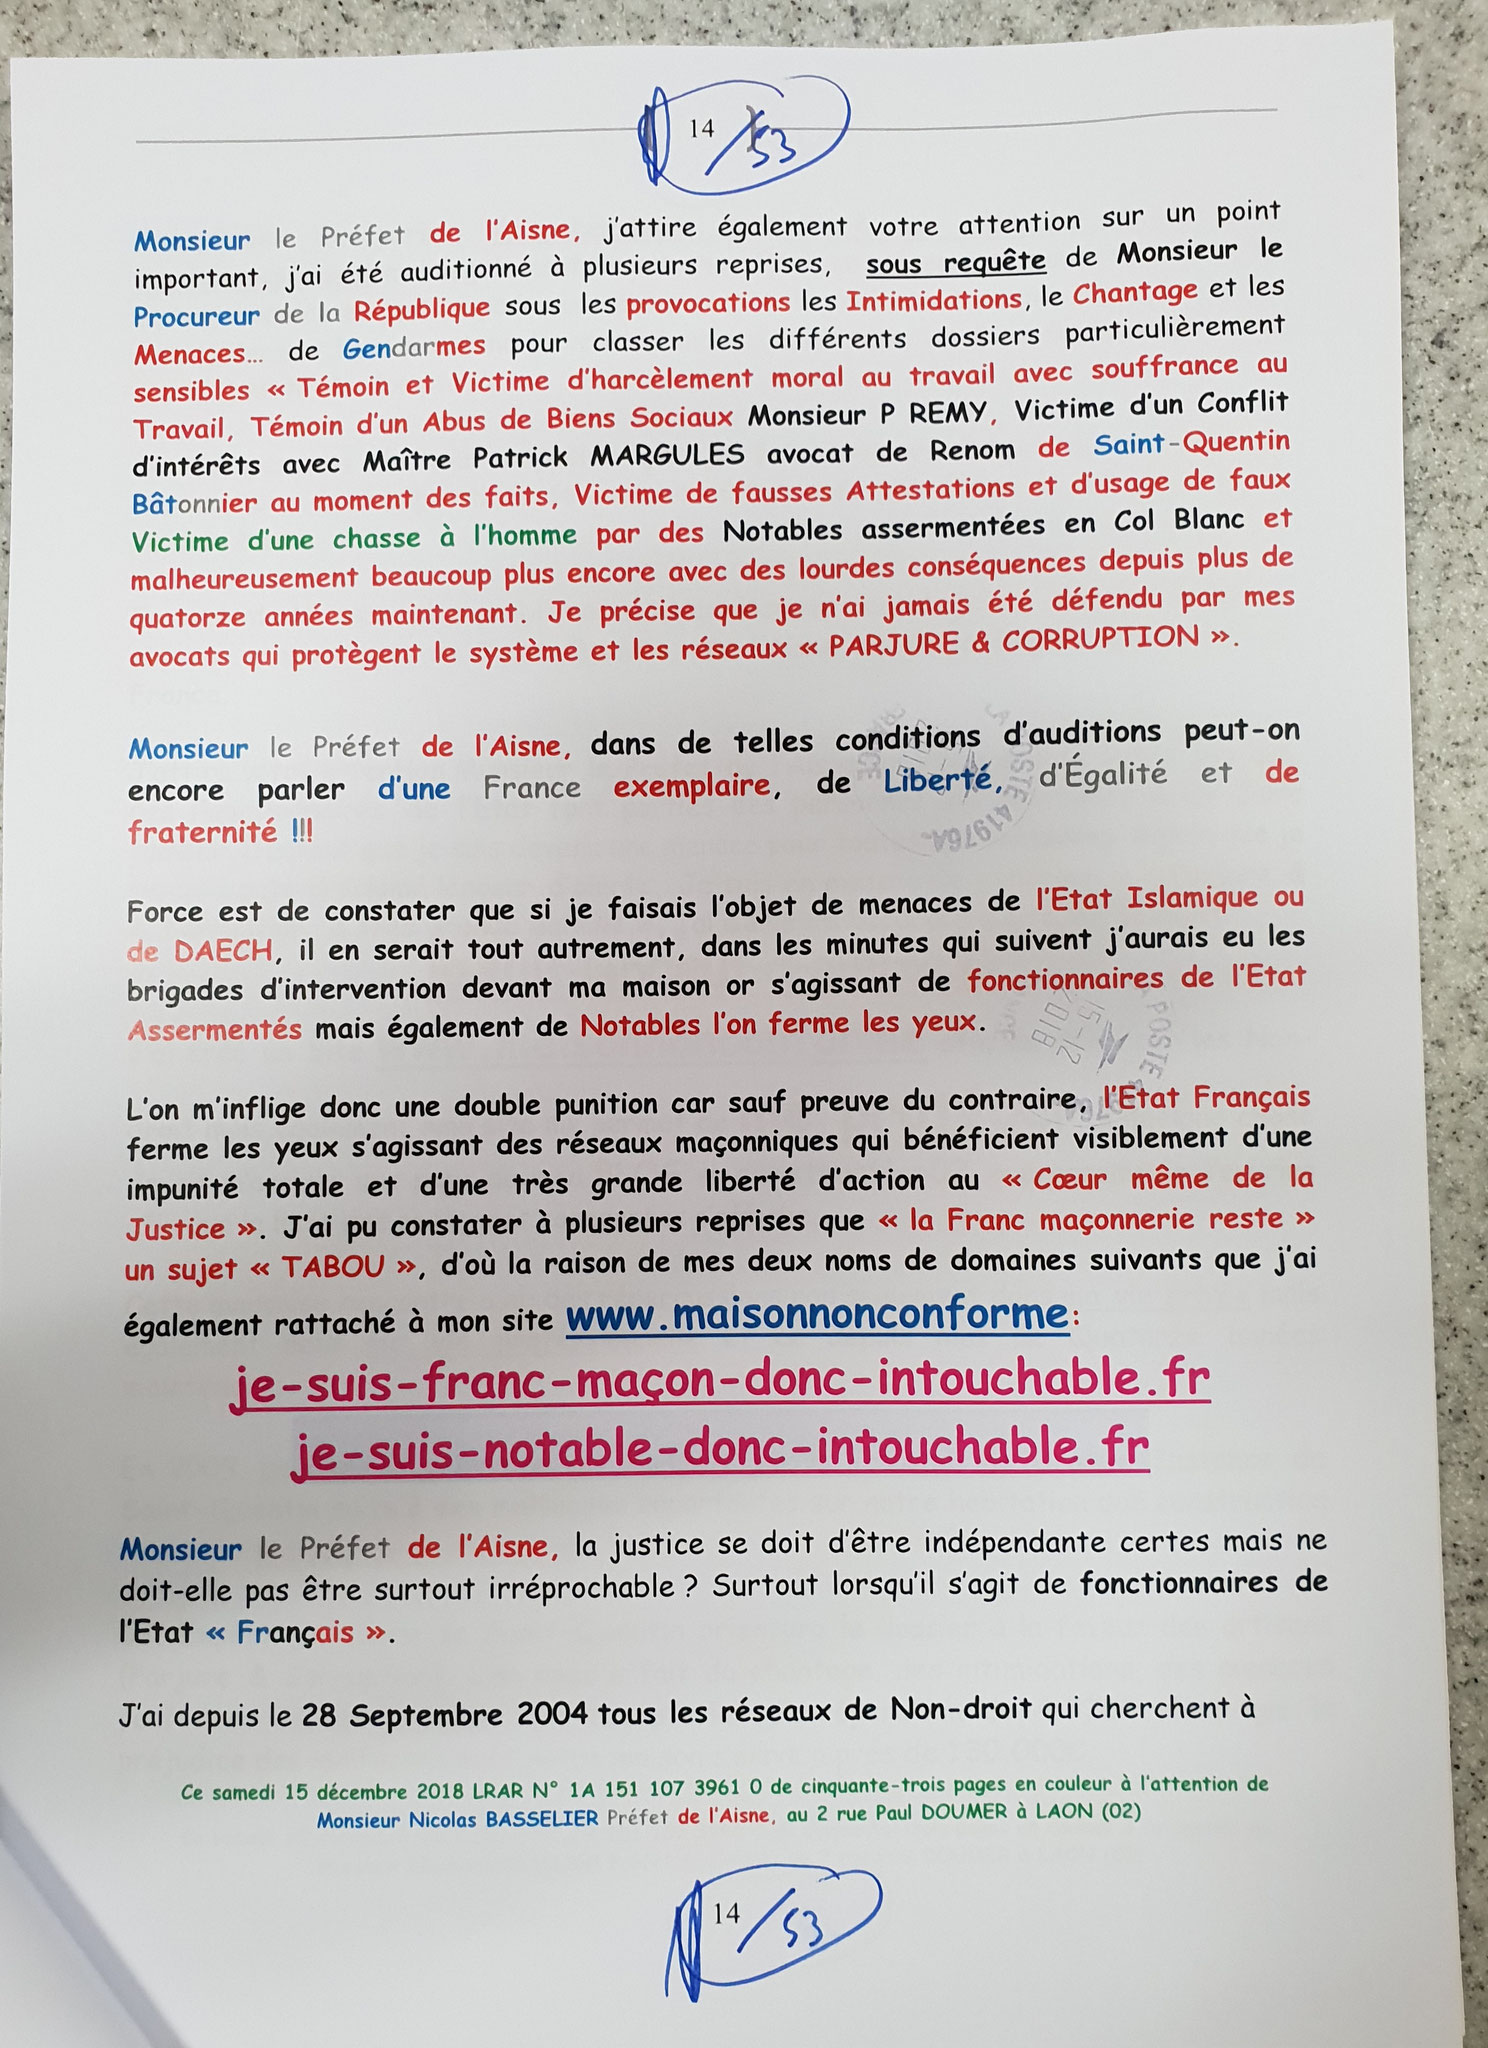 14 /53
Monsieur le Préfet de l'Aisne, j'attire également votre attention sur un point
important, j'ai été auditionné à plusieurs reprises, sous requête de Monsieur le
Procureur de la République sous les provocations les Intimidations, le Chantage et les
Menaces... de Gendarmes pour classer les différents dossiers particulièrement
sensibles « Témoin et Victime d'harcèlement moral au travail avec souffrance au
Travail, Témoin d'un Abus de Biens Sociaux Monsieur P REMY, Victime d'un Conflit
d'intérêts avec Maître Patrick MARGULES avocat de Renom de Saint-Quentin
Bâtonnier au moment des faits, Victime de fausses Attestations et d'usage de faux
Victime d'une chasse à l'homme par des Notables assermentées en Col Blanc et
malheureusement beaucoup plus encore avec des lourdes conséquences depuis plus de
quatorze années maintenant. Je précise que je n'ai jamais été défendu par mes
avocats qui protègent le système et les réseaux « PARJURE & CORRUPTION ».
Monsieur le Préfet de l'Aisne, dans de telles conditions d'auditions peut-on
encore parler d'une France exemplaire, de Liberté, d'Égalité et de
fraternité !!!
POSTE 41976A
Force est de constater que si je faisais l'objet de menaces de l'Etat Islamique ou
de DAECH, il en serait tout autrement, dans les minutes qui suivent j'aurais eu les
brigades d'intervention devant ma maison or s'agissant de fonctionnaires de l'Etat
Assermentés mais également de Notables l'on ferme les yeux.
POSTE
15-12
2018
L'on m'inflige donc une double punition car sauf preuve du contraire, l'Etat Français
ferme les yeux s'agissant des réseaux maçonniques qui bénéficient visiblement d'une
impunité totale et d'une très grande liberté d'action au « Cœur même de la
Justice ». J'ai pu constater à plusieurs reprises que « la Franc maçonnerie reste »
un sujet « TABOU », d'où la raison de mes deux noms de domaines suivants que j'ai
également rattaché à mon site www.maisonnonconforme:
je-suis-franc-maçon-donc-intouchable.fr
je-suis-notable-donc-intouchable.fr
Monsieur le Préfet de l'Aisne, la justice se doit d'être indépendante certes mais ne
doit-elle pas être surtout irréprochable ? Surtout lorsqu'il s'agit de fonctionnaires de
l'Etat « Français ».
J'ai depuis le 28 Septembre 2004 tous les réseaux de Non-droit qui cherchent à
Ce samedi 15 décembre 2018 LRAR N° 1A 151 107 3961 0 de cinquante-trois pages en couleur à l'attention de
Monsieur Nicolas BASSELIER Préfet de l'Aisne, au 2 rue Paul DOUMER à LAON (02)
14 /53